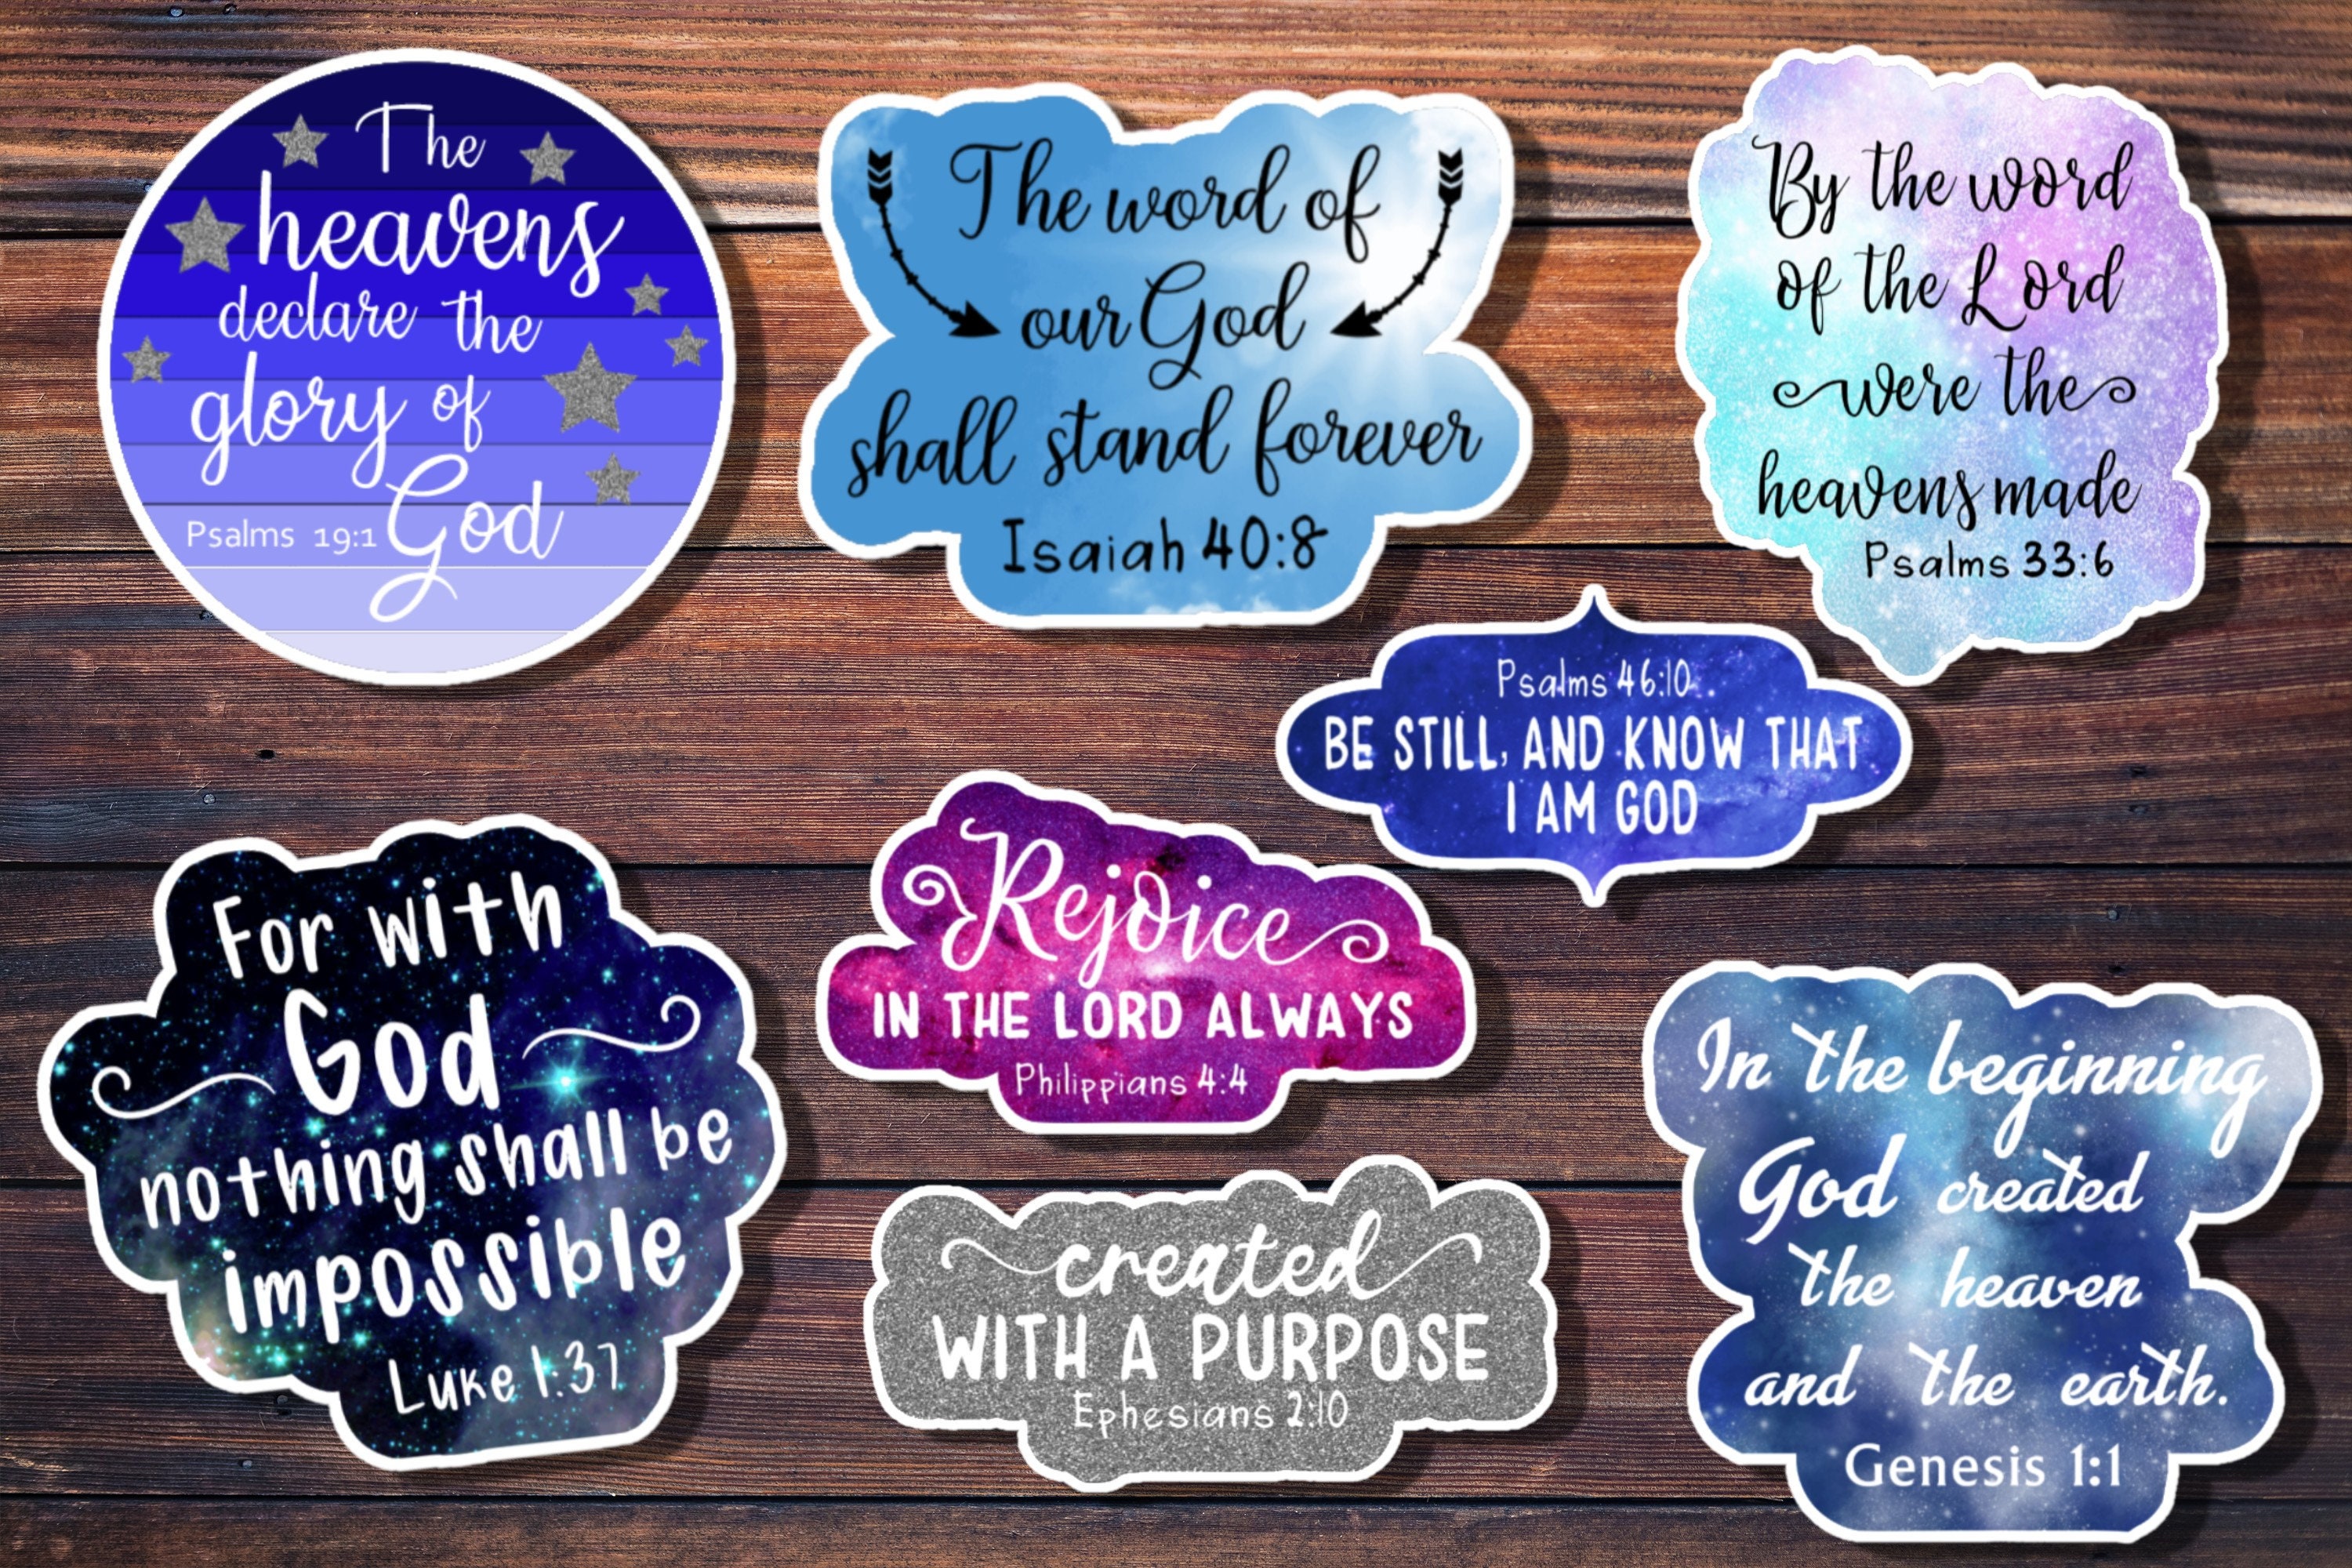 The
heavens
declare the
glory of
God
Psalms 19:1
The word of
our God
shall stand forever
Isaiah 40:8
By the word
of the Lord
were the
heavens made
Psalms 33:6
Psalms 46:10
BE STILL, AND KNOW THAT
I AM GOD
For with
God
nothing shall be
impossible
Luke 1:37
Rejoice
IN THE LORD ALWAYS
Philippians 4:4
created
WITH A PURPOSE
Ephesians 2:10
In the beginning
God created
the heaven
and the earth.
Genesis 1:1